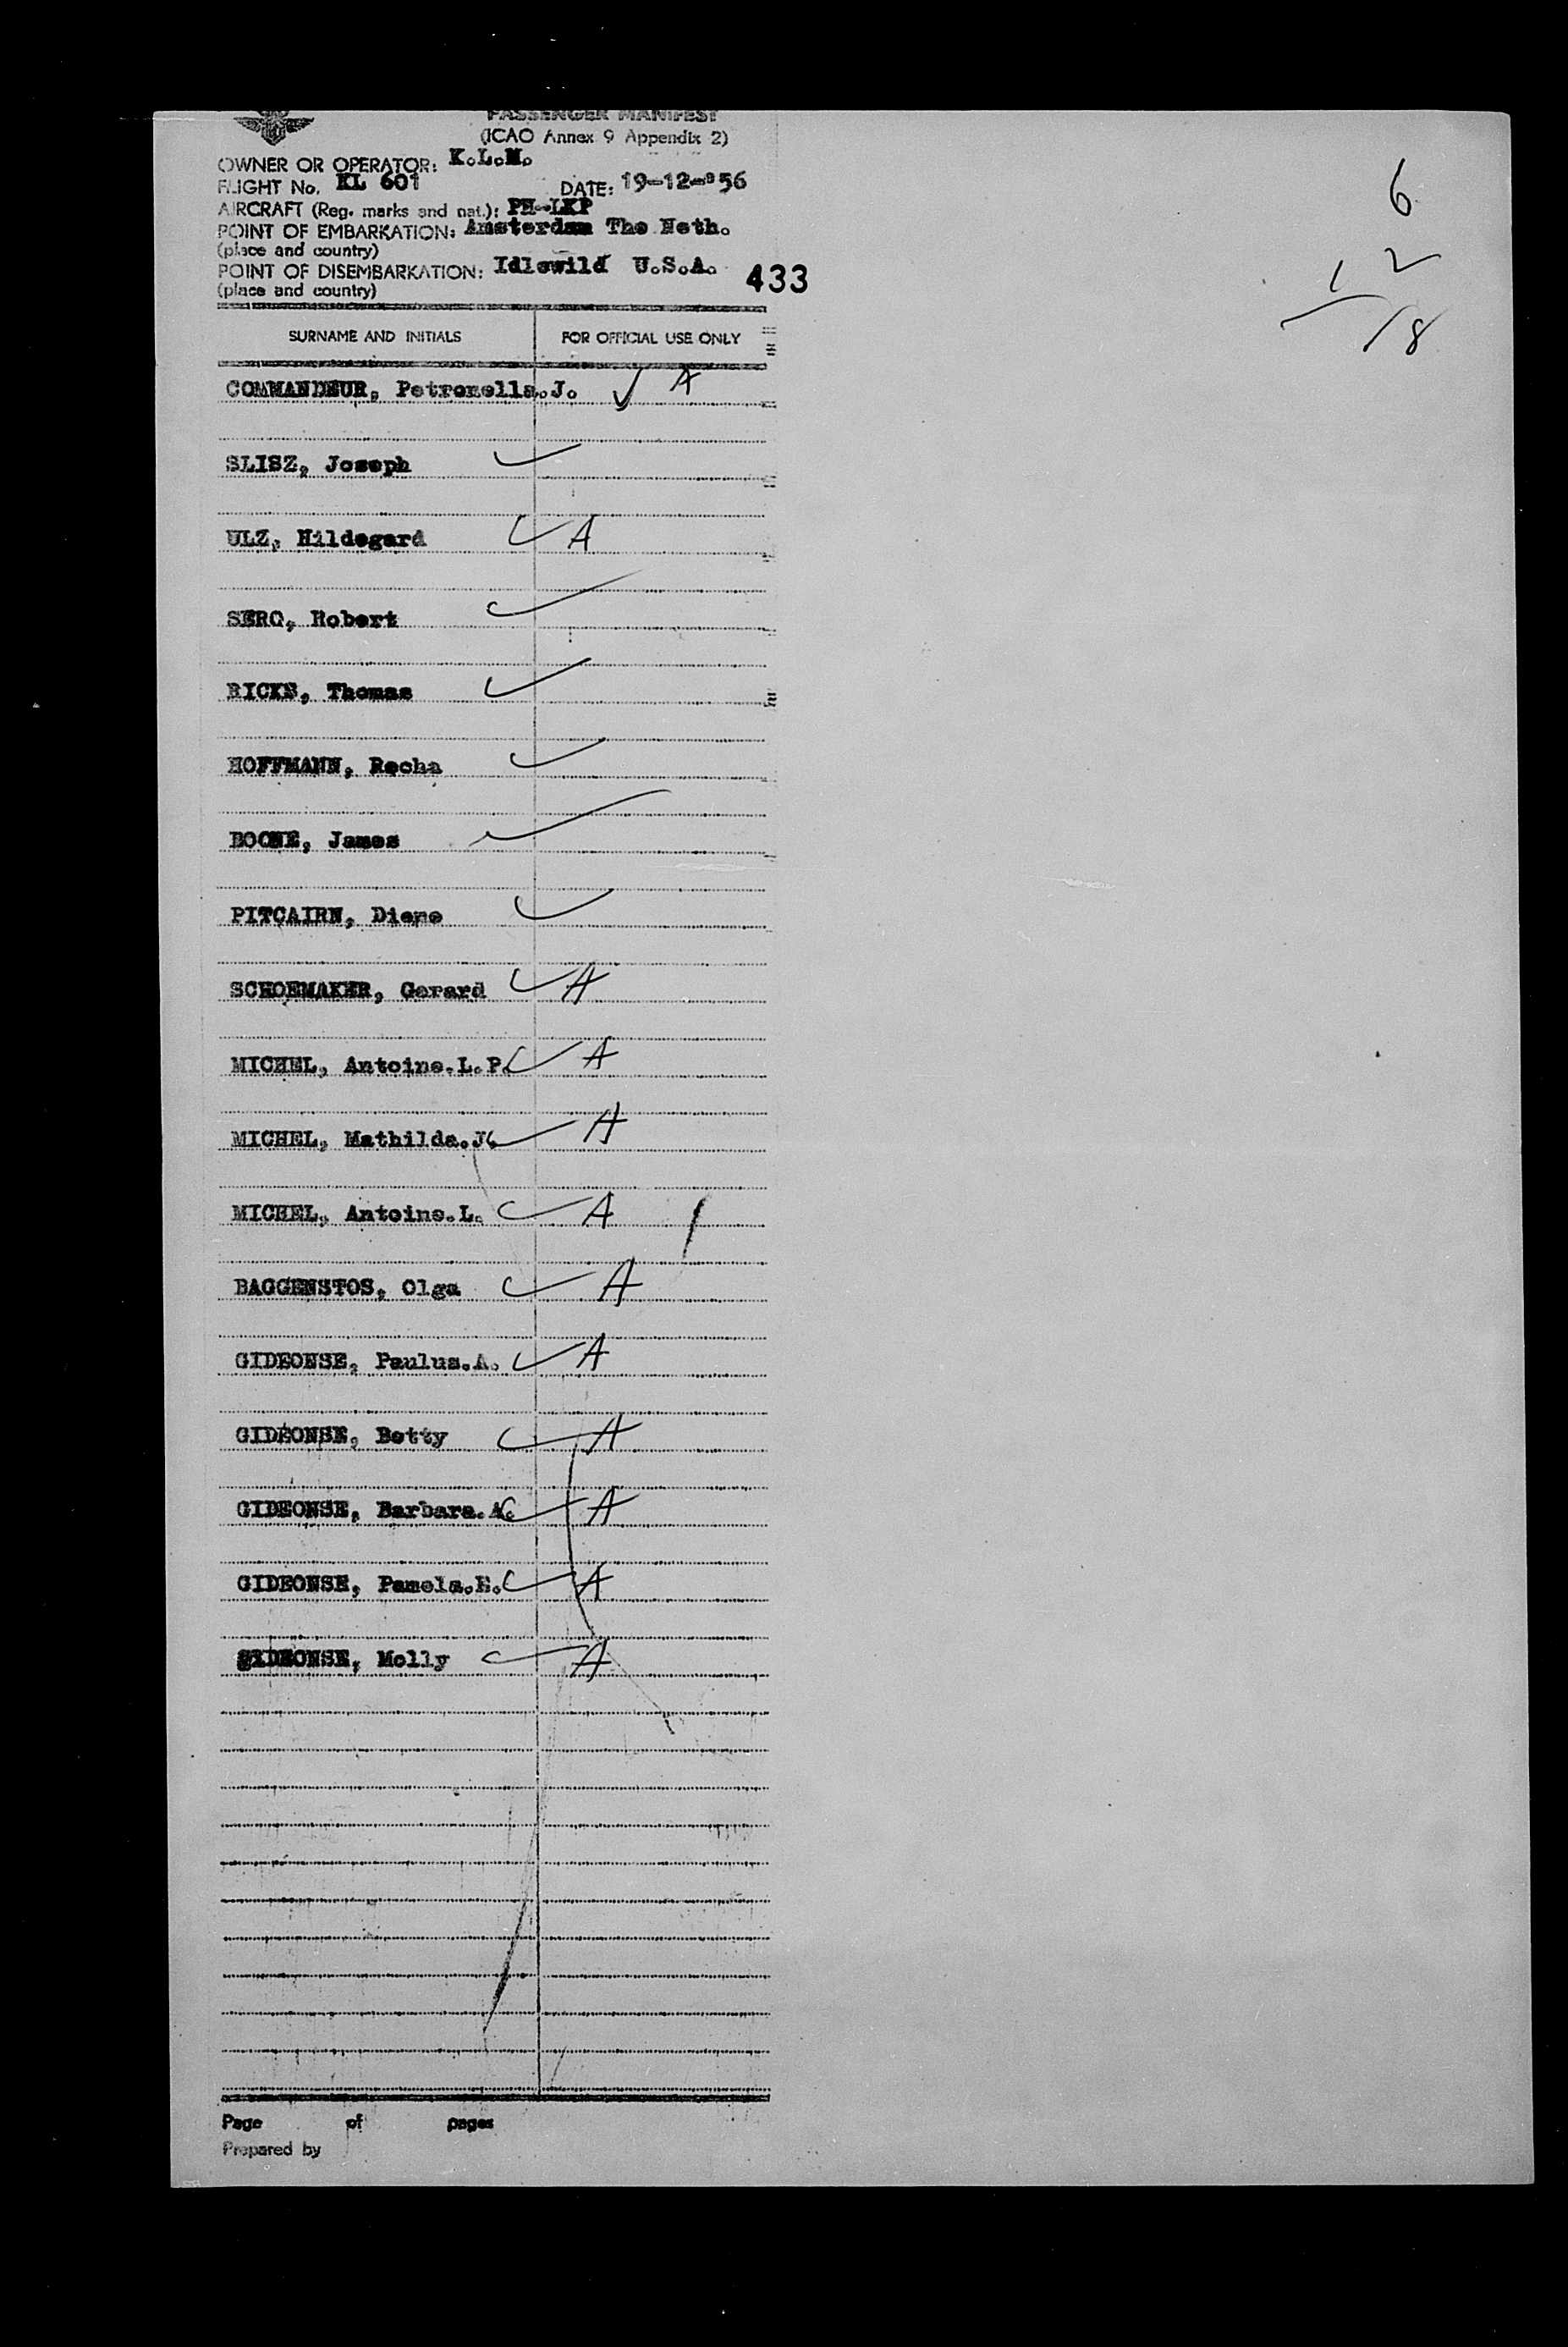 PASSENGER MANIFEST
(ICAO Annex 9 Appendix 2)
OWNER OR OPERATOR: K.L.M.
FLIGHT No. KL 601 DATE: 19-12-'56
AIRCRAFT (Reg. marks and nat.): PH-LKP
POINT OF EMBARKATION: Amsterdam The Neth.
(place and country)
POINT OF DISEMBARKATION: Idlewild U.S.A. 433
(place and country)
6
12
18
SURNAME AND INITIALS FOR OFFICIAL USE ONLY
COMMANDEUR, Petronella.J. ✓ A
SLISZ, Joseph ✓
ULZ, Hildegard ✓ A
SERQ, Robert ✓
RICKS, Thomas ✓
HOFFMANN, Recha ✓
BOONE, James ✓
PITCAIRN, Diene ✓
SCHOEMAKER, Gerard ✓ A
MICHEL, Antoine.L.P. ✓ A
MICHEL, Mathilda.J. ✓ A
MICHEL, Antoine.L. ✓ A
BAGGENSTOS, Olga ✓ A
GIDEONSE, Paulus.A. ✓ A
GIDEONSE, Betty ✓ A
GIDEONSE, Barbara.A. ✓ A
GIDEONSE, Pamela.E. ✓ A
GIDEONSE, Molly ✓ A
Page of pages
Prepared by